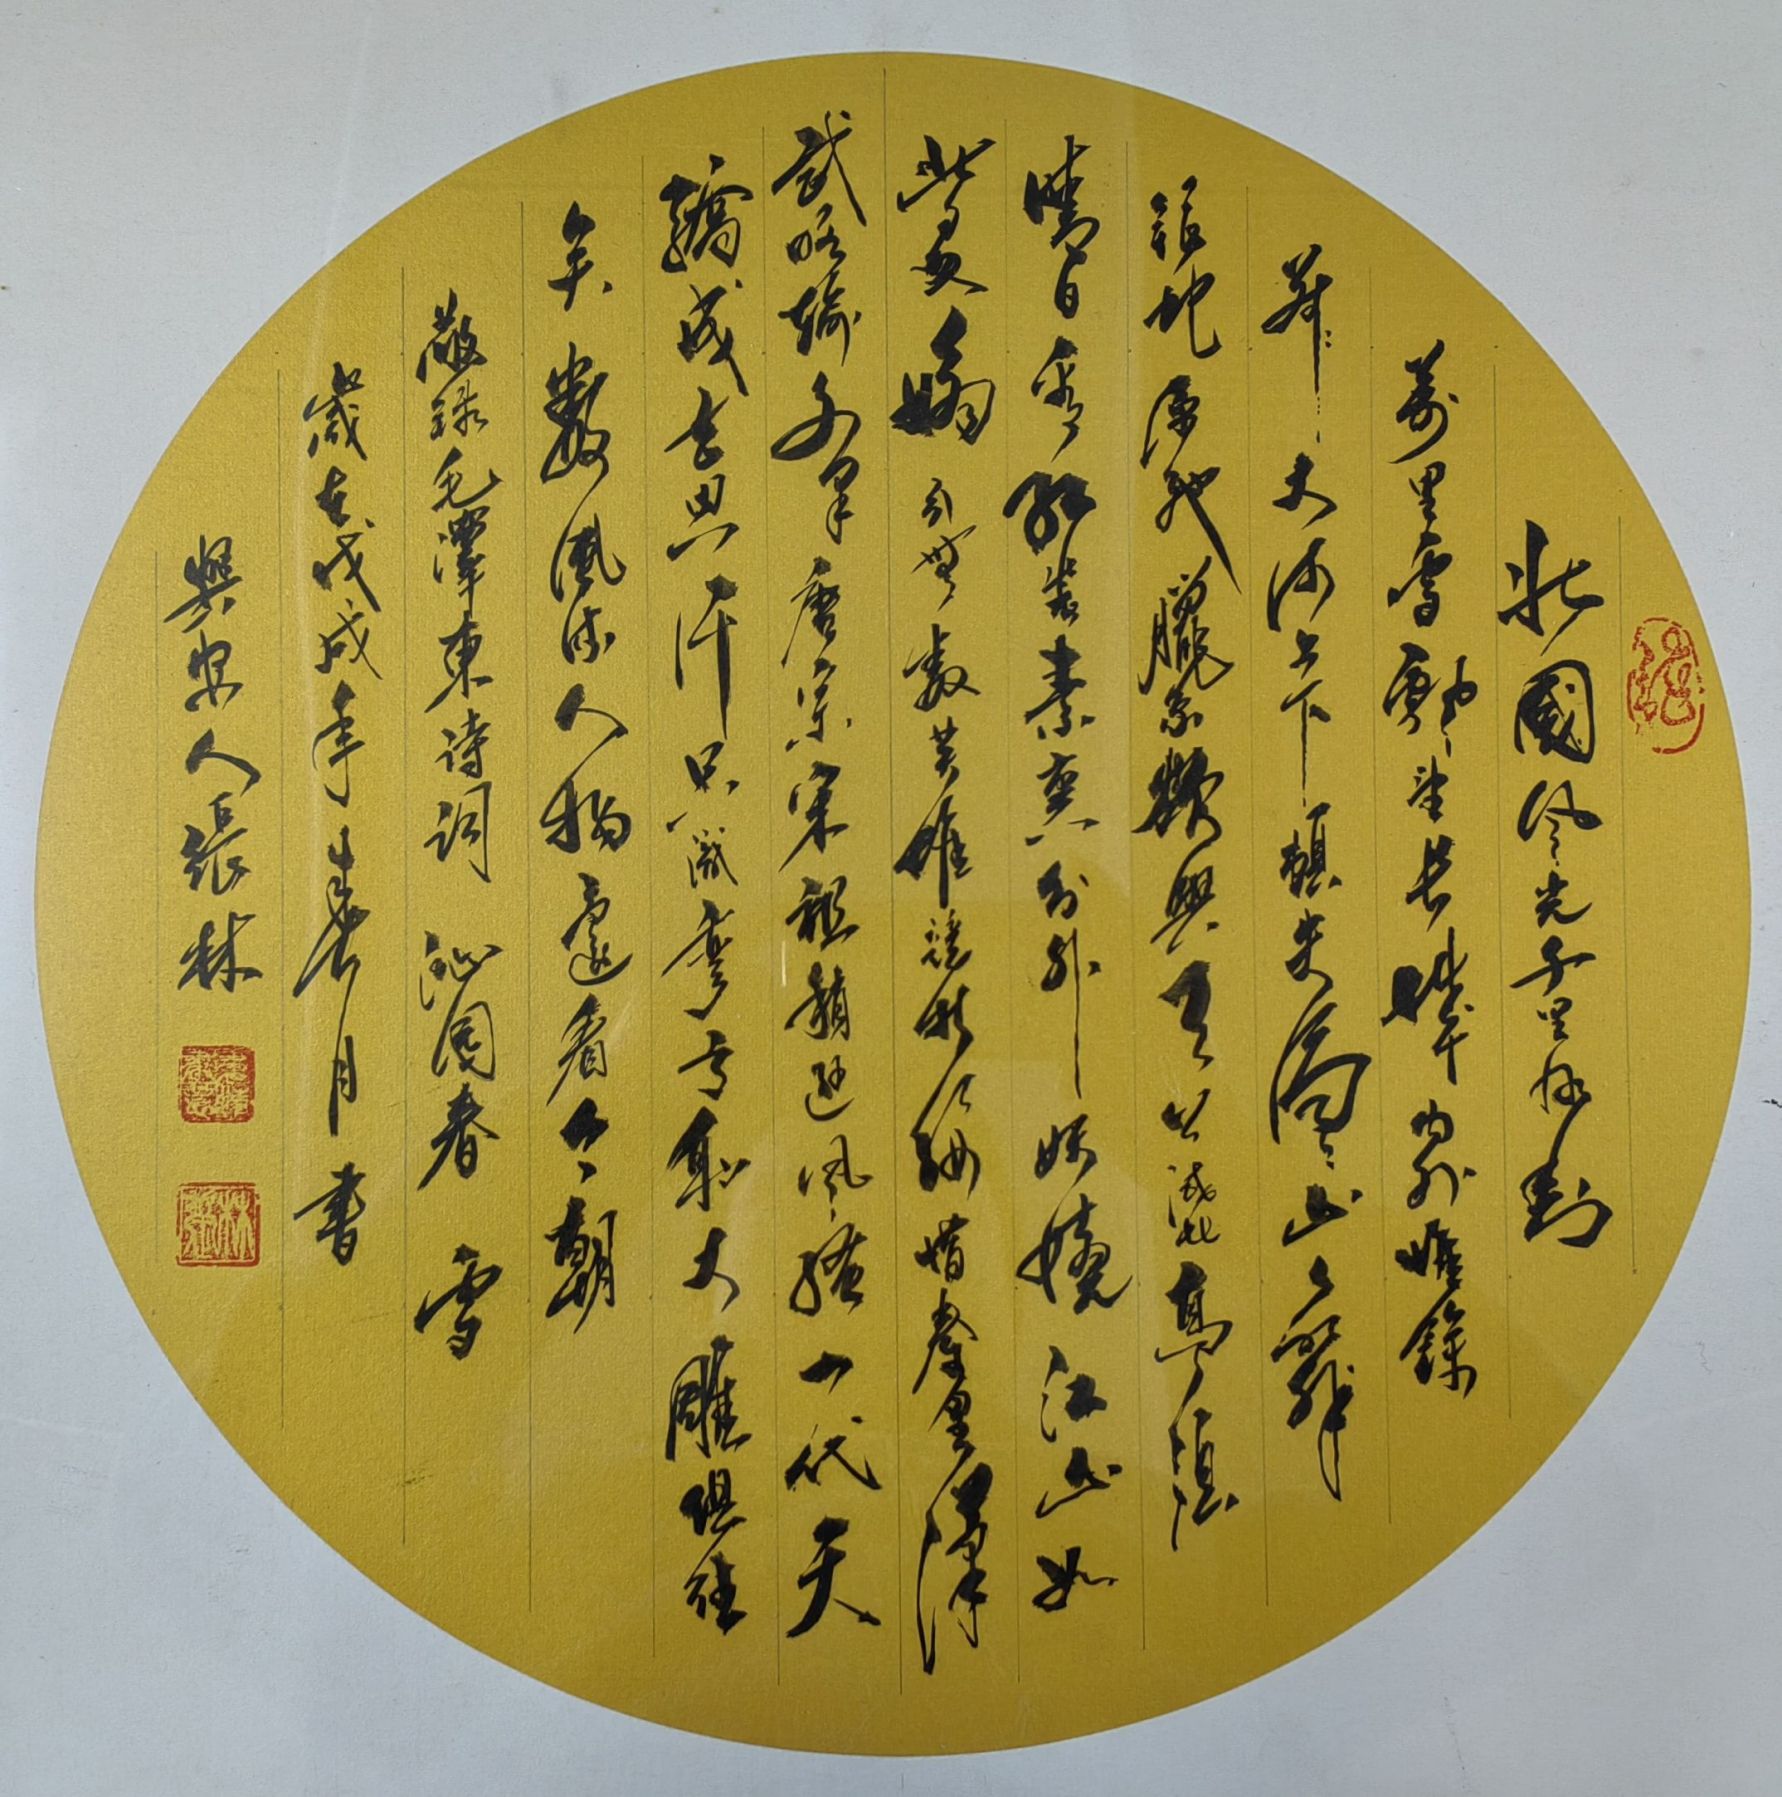 北國风光千里冰封
萬里雪飘望长城内外惟餘
莽莽大河上下頓失滔滔山舞
銀蛇原馳臘象欲與天公試比高須
晴日看紅装素裹分外妖嬈江山如
此多嬌引無数英雄競折腰惜秦皇漢
武略输文采唐宗宋祖稍逊风骚一代天
驕成吉思汗只識彎弓射大雕俱往
矣數風流人物還看今朝
敬録毛澤東诗词 沁园春 雪
歲在戊戌年春月書
興安人張林